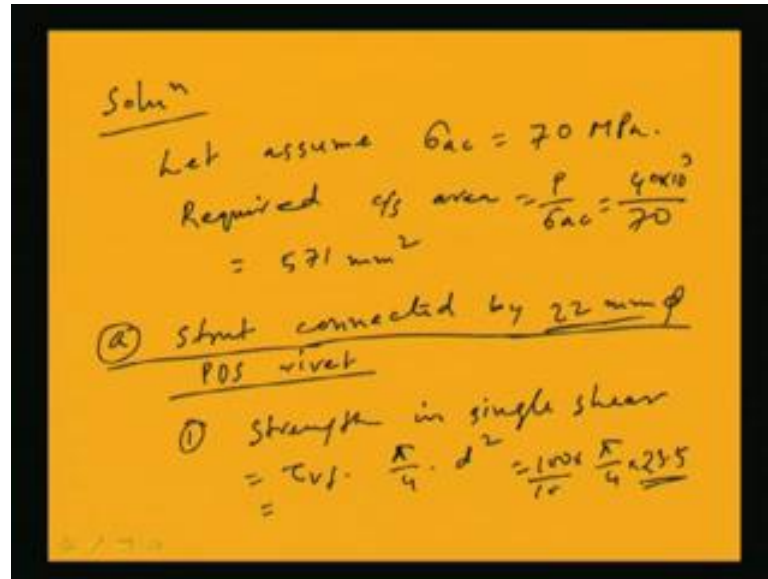 Soluⁿ
Let assume σac = 70 MPa.
Required c/s area = P/σac = 40×10³/70
= 571 mm²
(a) Strut connected by 22 mm φ
PDS rivet
① Strength in single shear
= τvf . π/4 . d² = 100× π/4 × 23.5
=